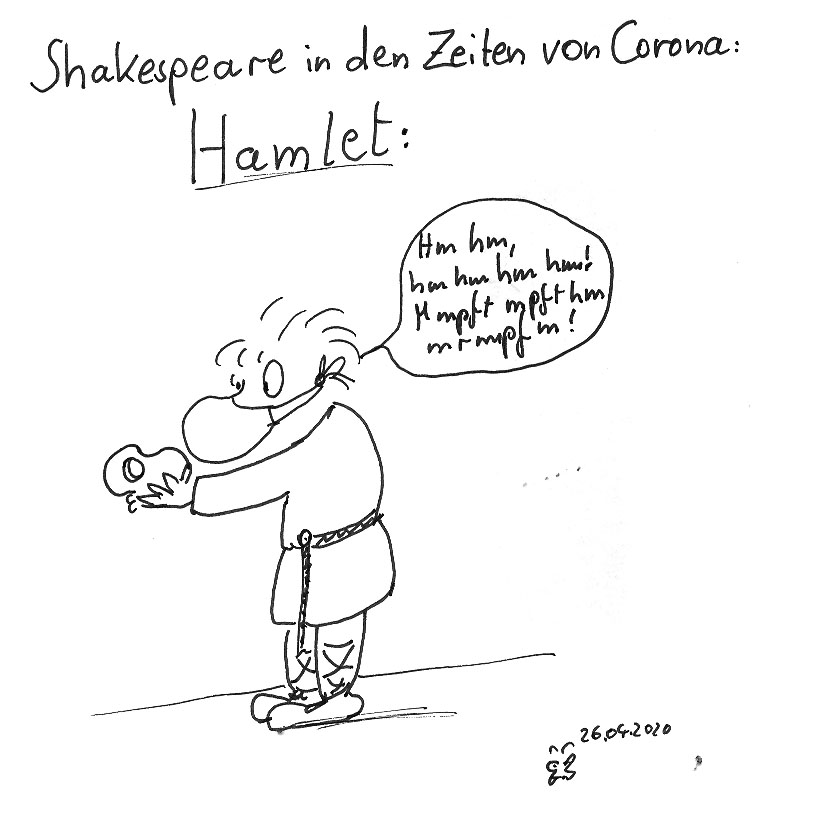 Shakespeare in den Zeiten von Corona:
Hamlet:
Hm hm,
hm hm hm hm!
Hmpft mpft hm
mrmpf m!
26.04.2020